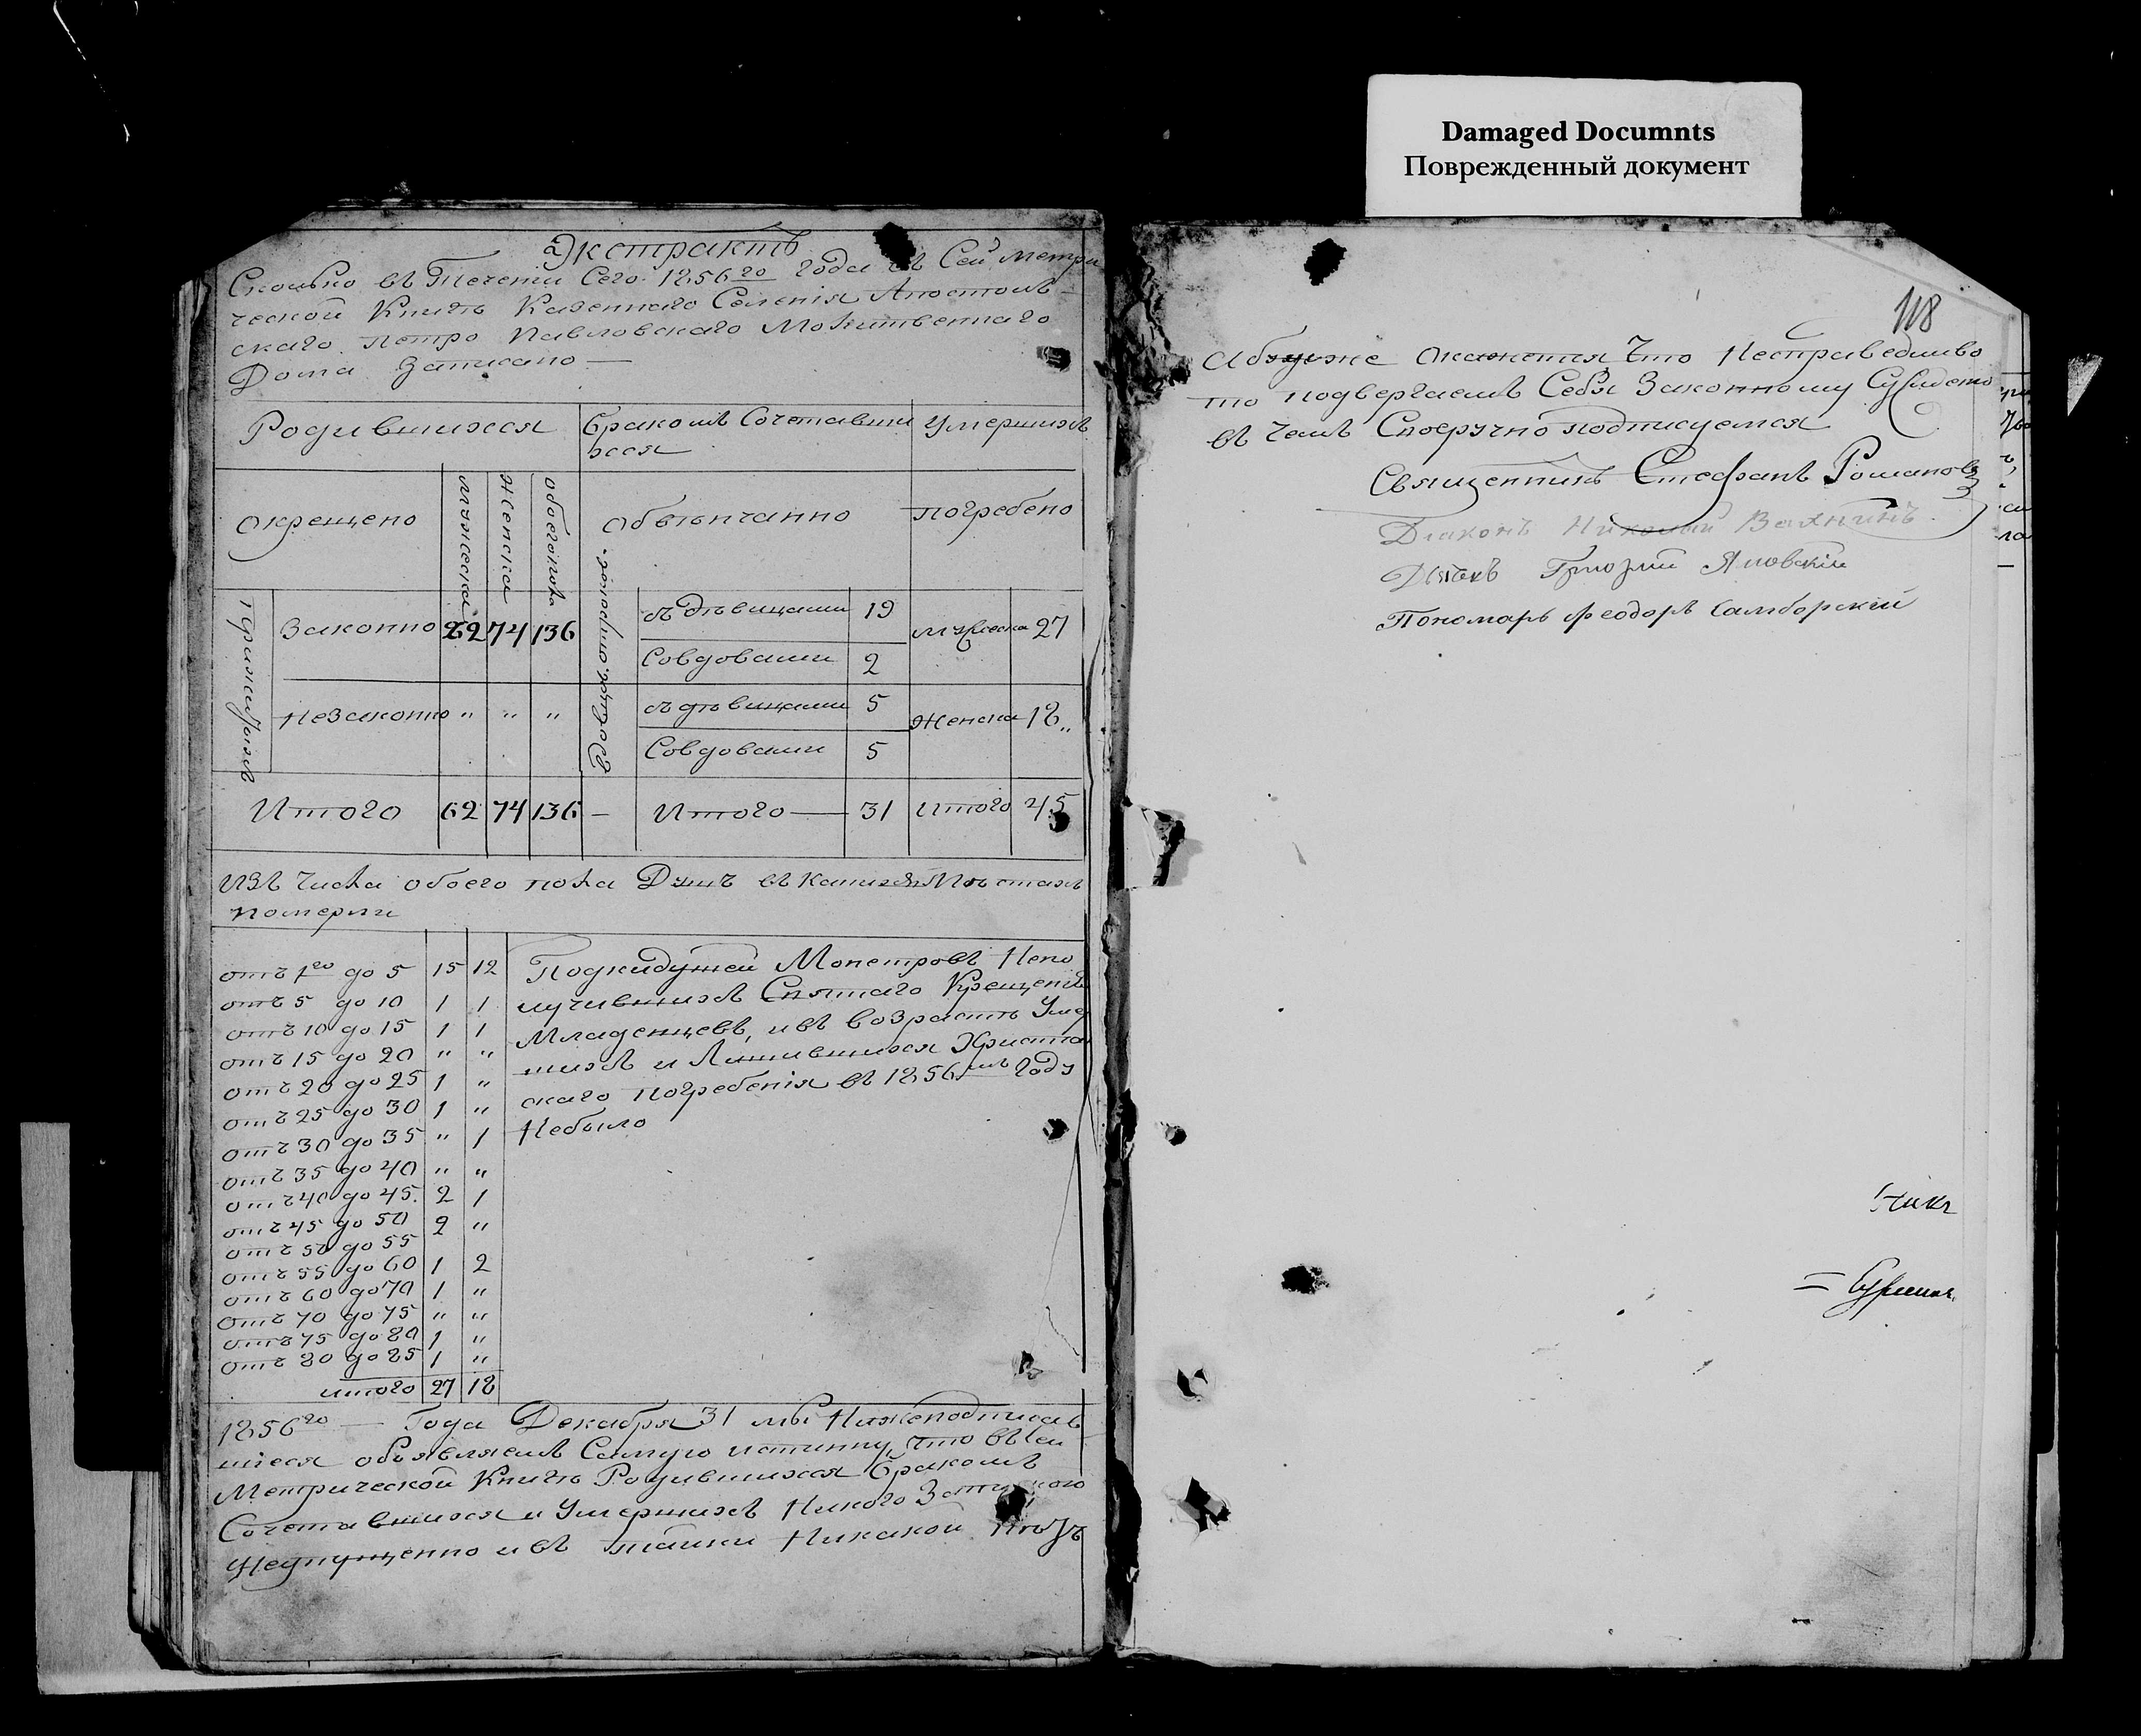 Damaged Documnts
Поврежденный документ
Экстрактъ
Сколько въ Течении Сего 1856го Года въ Сей Метри
ческой Книгѣ Казеннаго Селенія Апостоль-
скаго Петро Павловскаго Молитвеннаго
Дома Записано —
Родившихся
Бракомъ Сочетавши
хся
Умершихъ
Окрещено
Мужеска
Женска
обоегопола
Обвѣнчанно
погребено
Законно 62 74 136
съ дѣвицами 19
Мужеска 27
Совдовами 2
Незаконно " " "
съ дѣвицами 5
Женска 18 "
Совдовами 5
Итого 62 74 136 —
Итого — 31
Итого 45
Изъ Числа обоего пола Душъ въ Лѣтахъ
померли
отъ 1го до 5 15 12
отъ 5 до 10 1 1
отъ 10 до 15 1 1
отъ 15 до 20 " "
отъ 20 до 25 1 "
отъ 25 до 30 1 "
отъ 30 до 35 " 1
отъ 35 до 40 " "
отъ 40 до 45. 2 1
отъ 45 до 50 2 "
отъ 50 до 55
отъ 55 до 60 1 2
отъ 60 до 70 1 "
отъ 70 до 75 " "
отъ 75 до 80 1 "
отъ 80 до 85 1 "
итого 27 18
Подкидушей Монстровъ Непо
лучившихъ Святаго Крещенія
Младенцевъ, ивъ возрастѣ Умер
шихъ и Лишившихся Христиа
скаго погребенія въ 1856мъ Году
Небыло
1856го — Года Декабря 31 мы Нижеподписав
шіеся объявляемъ Самую истинну, Что въ сей
Метрической Книгѣ Родившихся Бракомъ
Сочетавшихся и Умершихъ Никого
Неупущенно ивъ Никакой
118
Абуде же Окажется Что Несправедливо
то подвергаемъ Себя Законному Суждению
въ чемъ Своеручно подписуемся
Священникъ Стефанъ Романовъ
Діаконъ Николай
Дьячекъ Яновскій
Пономарь Феодоръ Самборскій